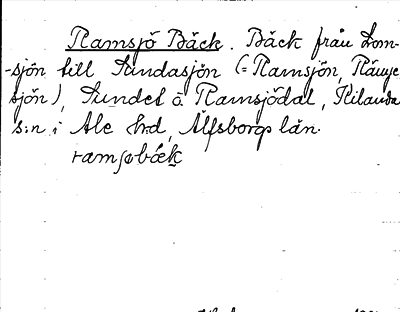 Ramsjö Bäck. Bäck från Lom-
-sjön till Sundasjön (= Ramsjön,
sjön), Sundet o Ramsjödal, Kilanda
s:n i Ale h:d, Älfsborgs län.
ramsøbäk